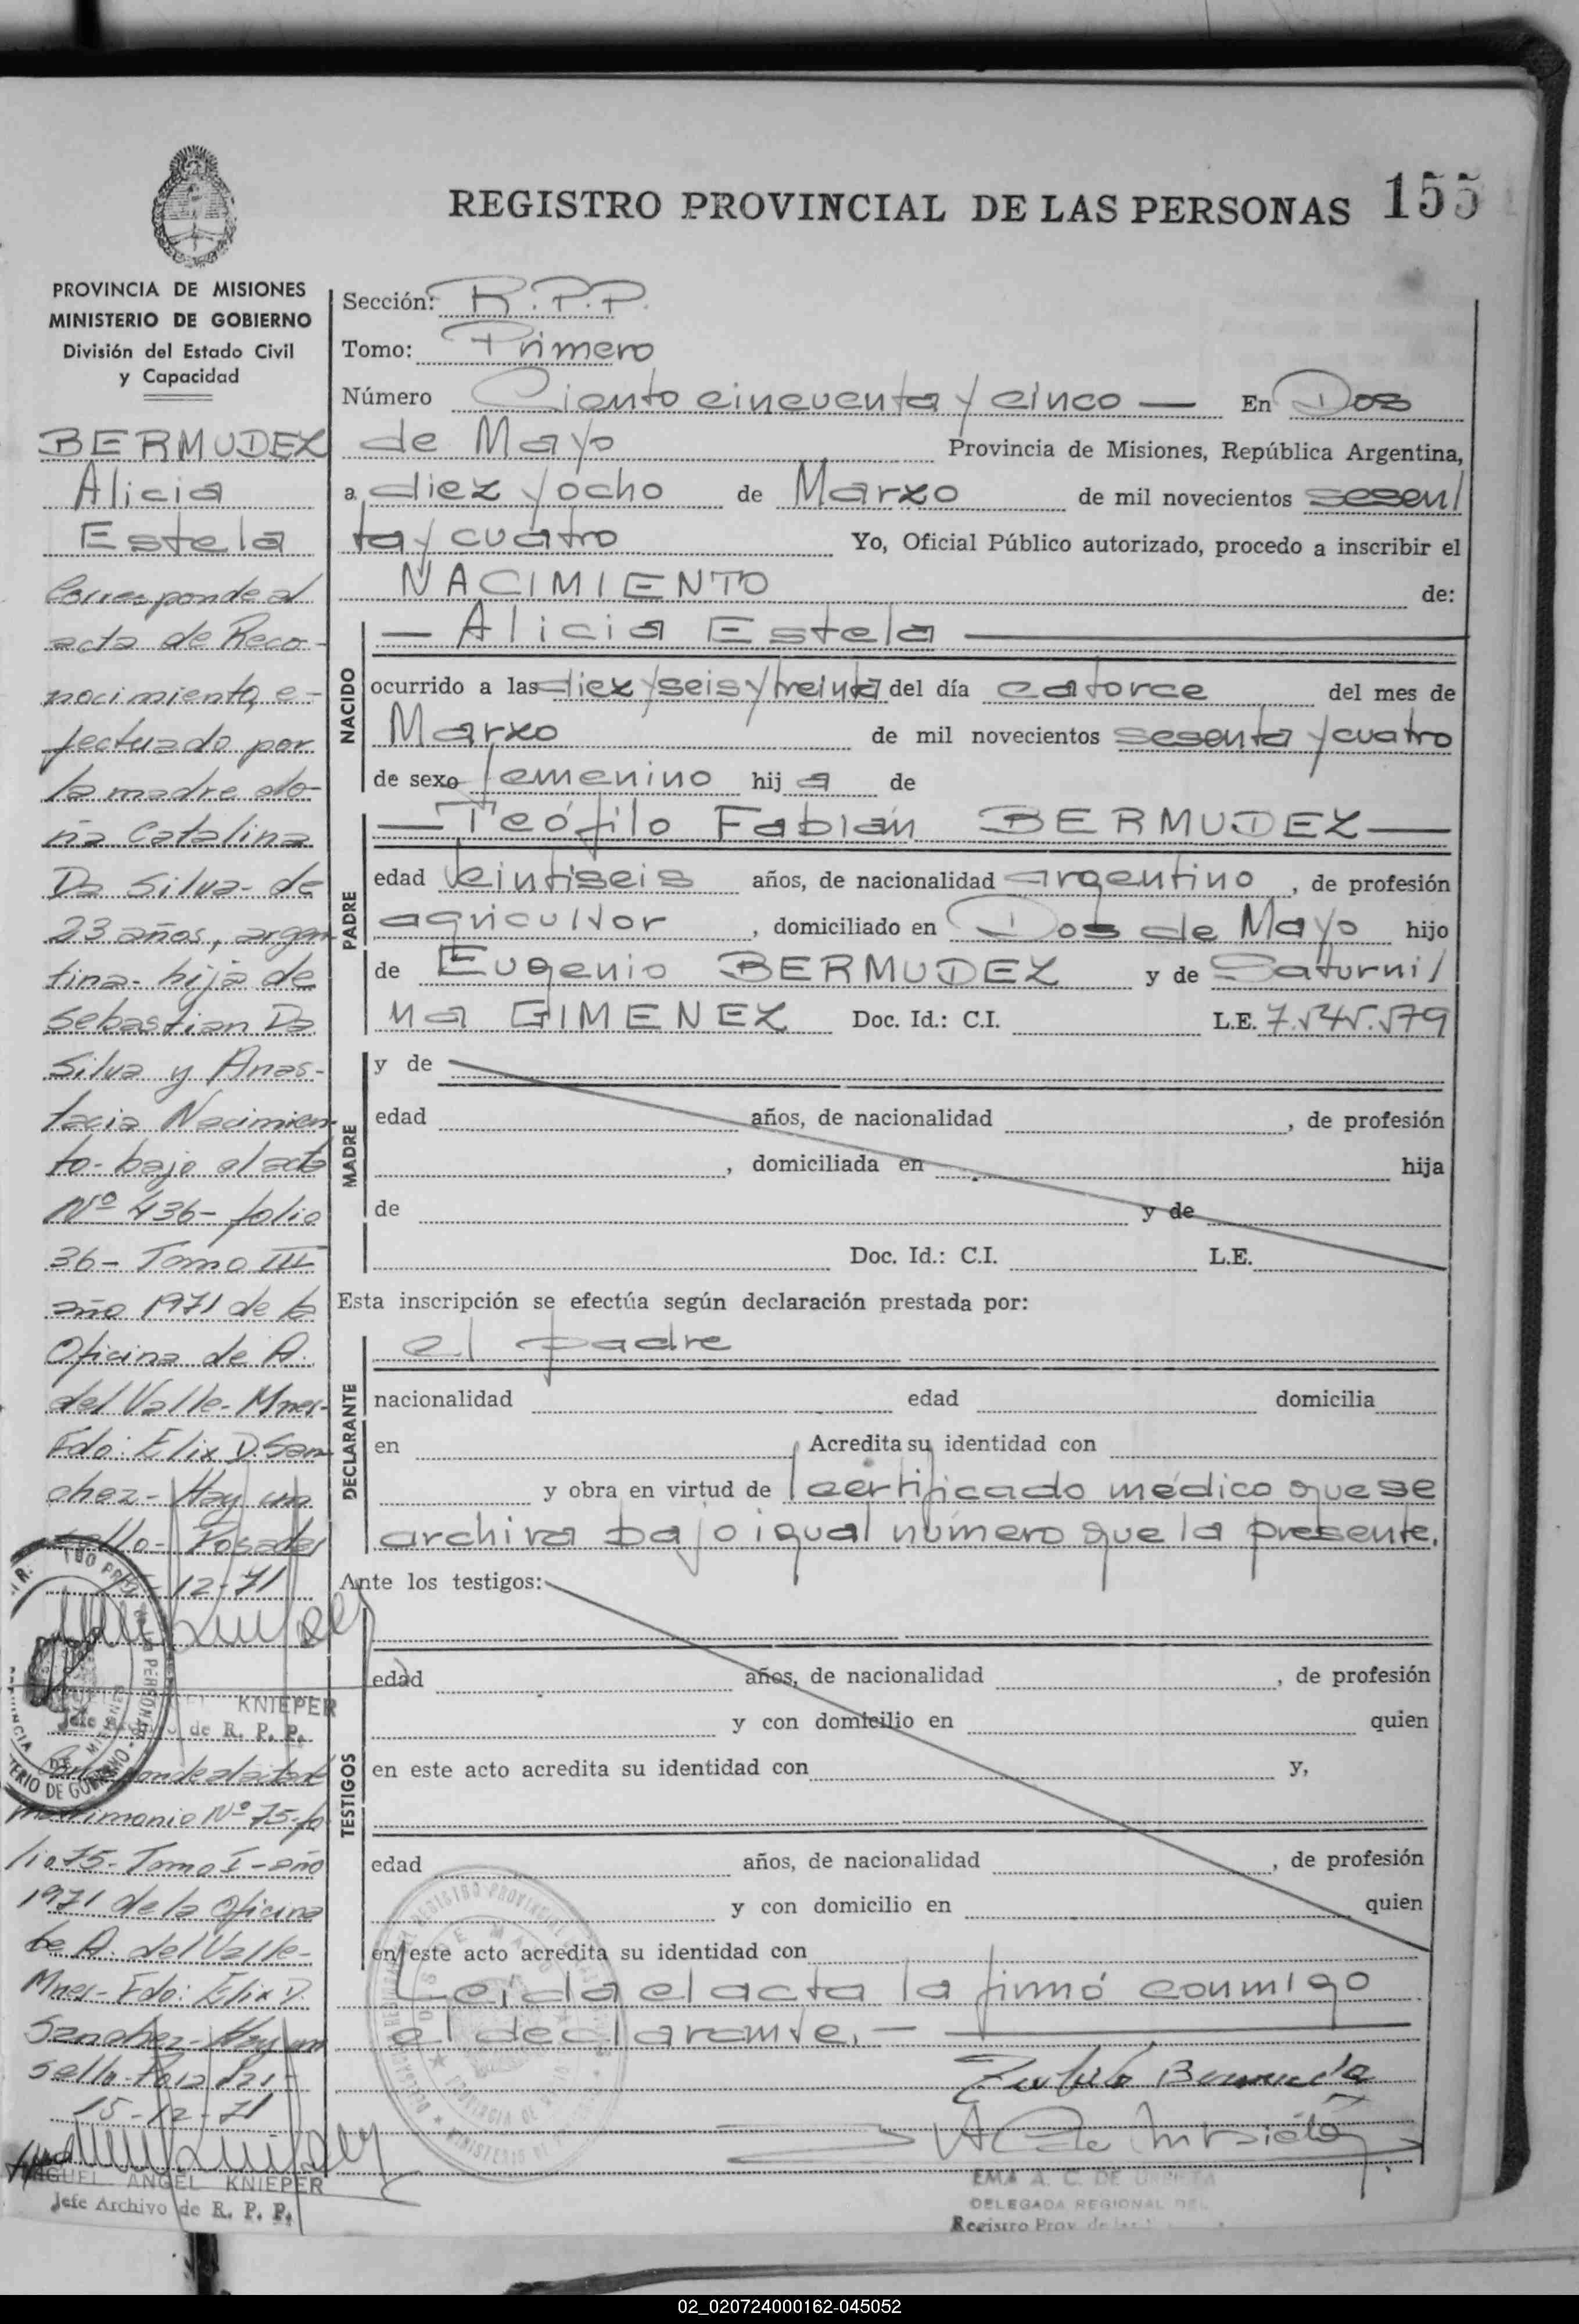 REGISTRO PROVINCIAL DE LAS PERSONAS 155
PROVINCIA DE MISIONES
MINISTERIO DE GOBIERNO
División del Estado Civil
y Capacidad
BERMUDEZ
Alicia
Estela
Corresponde al
acta de Reco-
nocimiento, e-
fectuado por
la madre do-
ña Catalina
Da Silva- de
23 años, argen-
tina- hija de
Sebastian Da
Silva y Anas-
tacia Nacimien-
to- bajo el acta
Nº 436- folio
36- Tomo III
año 1971 de la
Oficina de A.
del Valle- Mnes-
Fdo: Elix D. San-
chez- Hay un
sello- Posadas
12-71
KNIEPER
Jefe Archivo de R. P. P.
Corresponde al acta de
matrimonio Nº 75- fo
lio 75- Tomo I- año
1971 de la Oficina
de A. del Valle-
Mnes- Fdo: Elix D.
Sanchez- Hay un
sello- Posadas-
15-12-71
MIGUEL ANGEL KNIEPER
Jefe Archivo de R. P. P.
Sección: R.P.P.
Tomo: Primero
Número Ciento cincuenta y cinco — En Dos
de Mayo Provincia de Misiones, República Argentina,
a diez y ocho de Marzo de mil novecientos sesen/
ta y cuatro Yo, Oficial Público autorizado, procedo a inscribir el
NACIMIENTO de:
— Alicia Estela —
NACIDO
ocurrido a las diez y seis y treinta del día catorce del mes de
Marzo de mil novecientos sesenta y cuatro
de sexo femenino hij a de
— Teófilo Fabián BERMUDEZ —
PADRE
edad veintiseis años, de nacionalidad argentino, de profesión
agricultor, domiciliado en Dos de Mayo hijo
de Eugenio BERMUDEZ y de Saturni/
na GIMENEZ Doc. Id.: C.I. L.E. 7.545.579
MADRE
y de
edad años, de nacionalidad , de profesión
, domiciliada en hija
de y de
Doc. Id.: C.I. L.E.
Esta inscripción se efectúa según declaración prestada por:
el padre
DECLARANTE
nacionalidad edad domicilia
en Acredita su identidad con
y obra en virtud de certificado médico que se
archiva bajo igual número que la presente.
Ante los testigos:
TESTIGOS
edad años, de nacionalidad , de profesión
y con domicilio en quien
en este acto acredita su identidad con y,
edad años, de nacionalidad , de profesión
y con domicilio en quien
en este acto acredita su identidad con
Leída el acta la firmó conmigo
el declarante.—
EMA A. C. DE
DELEGADA REGIONAL DEL
Registro Prov.
02_020724000162-045052